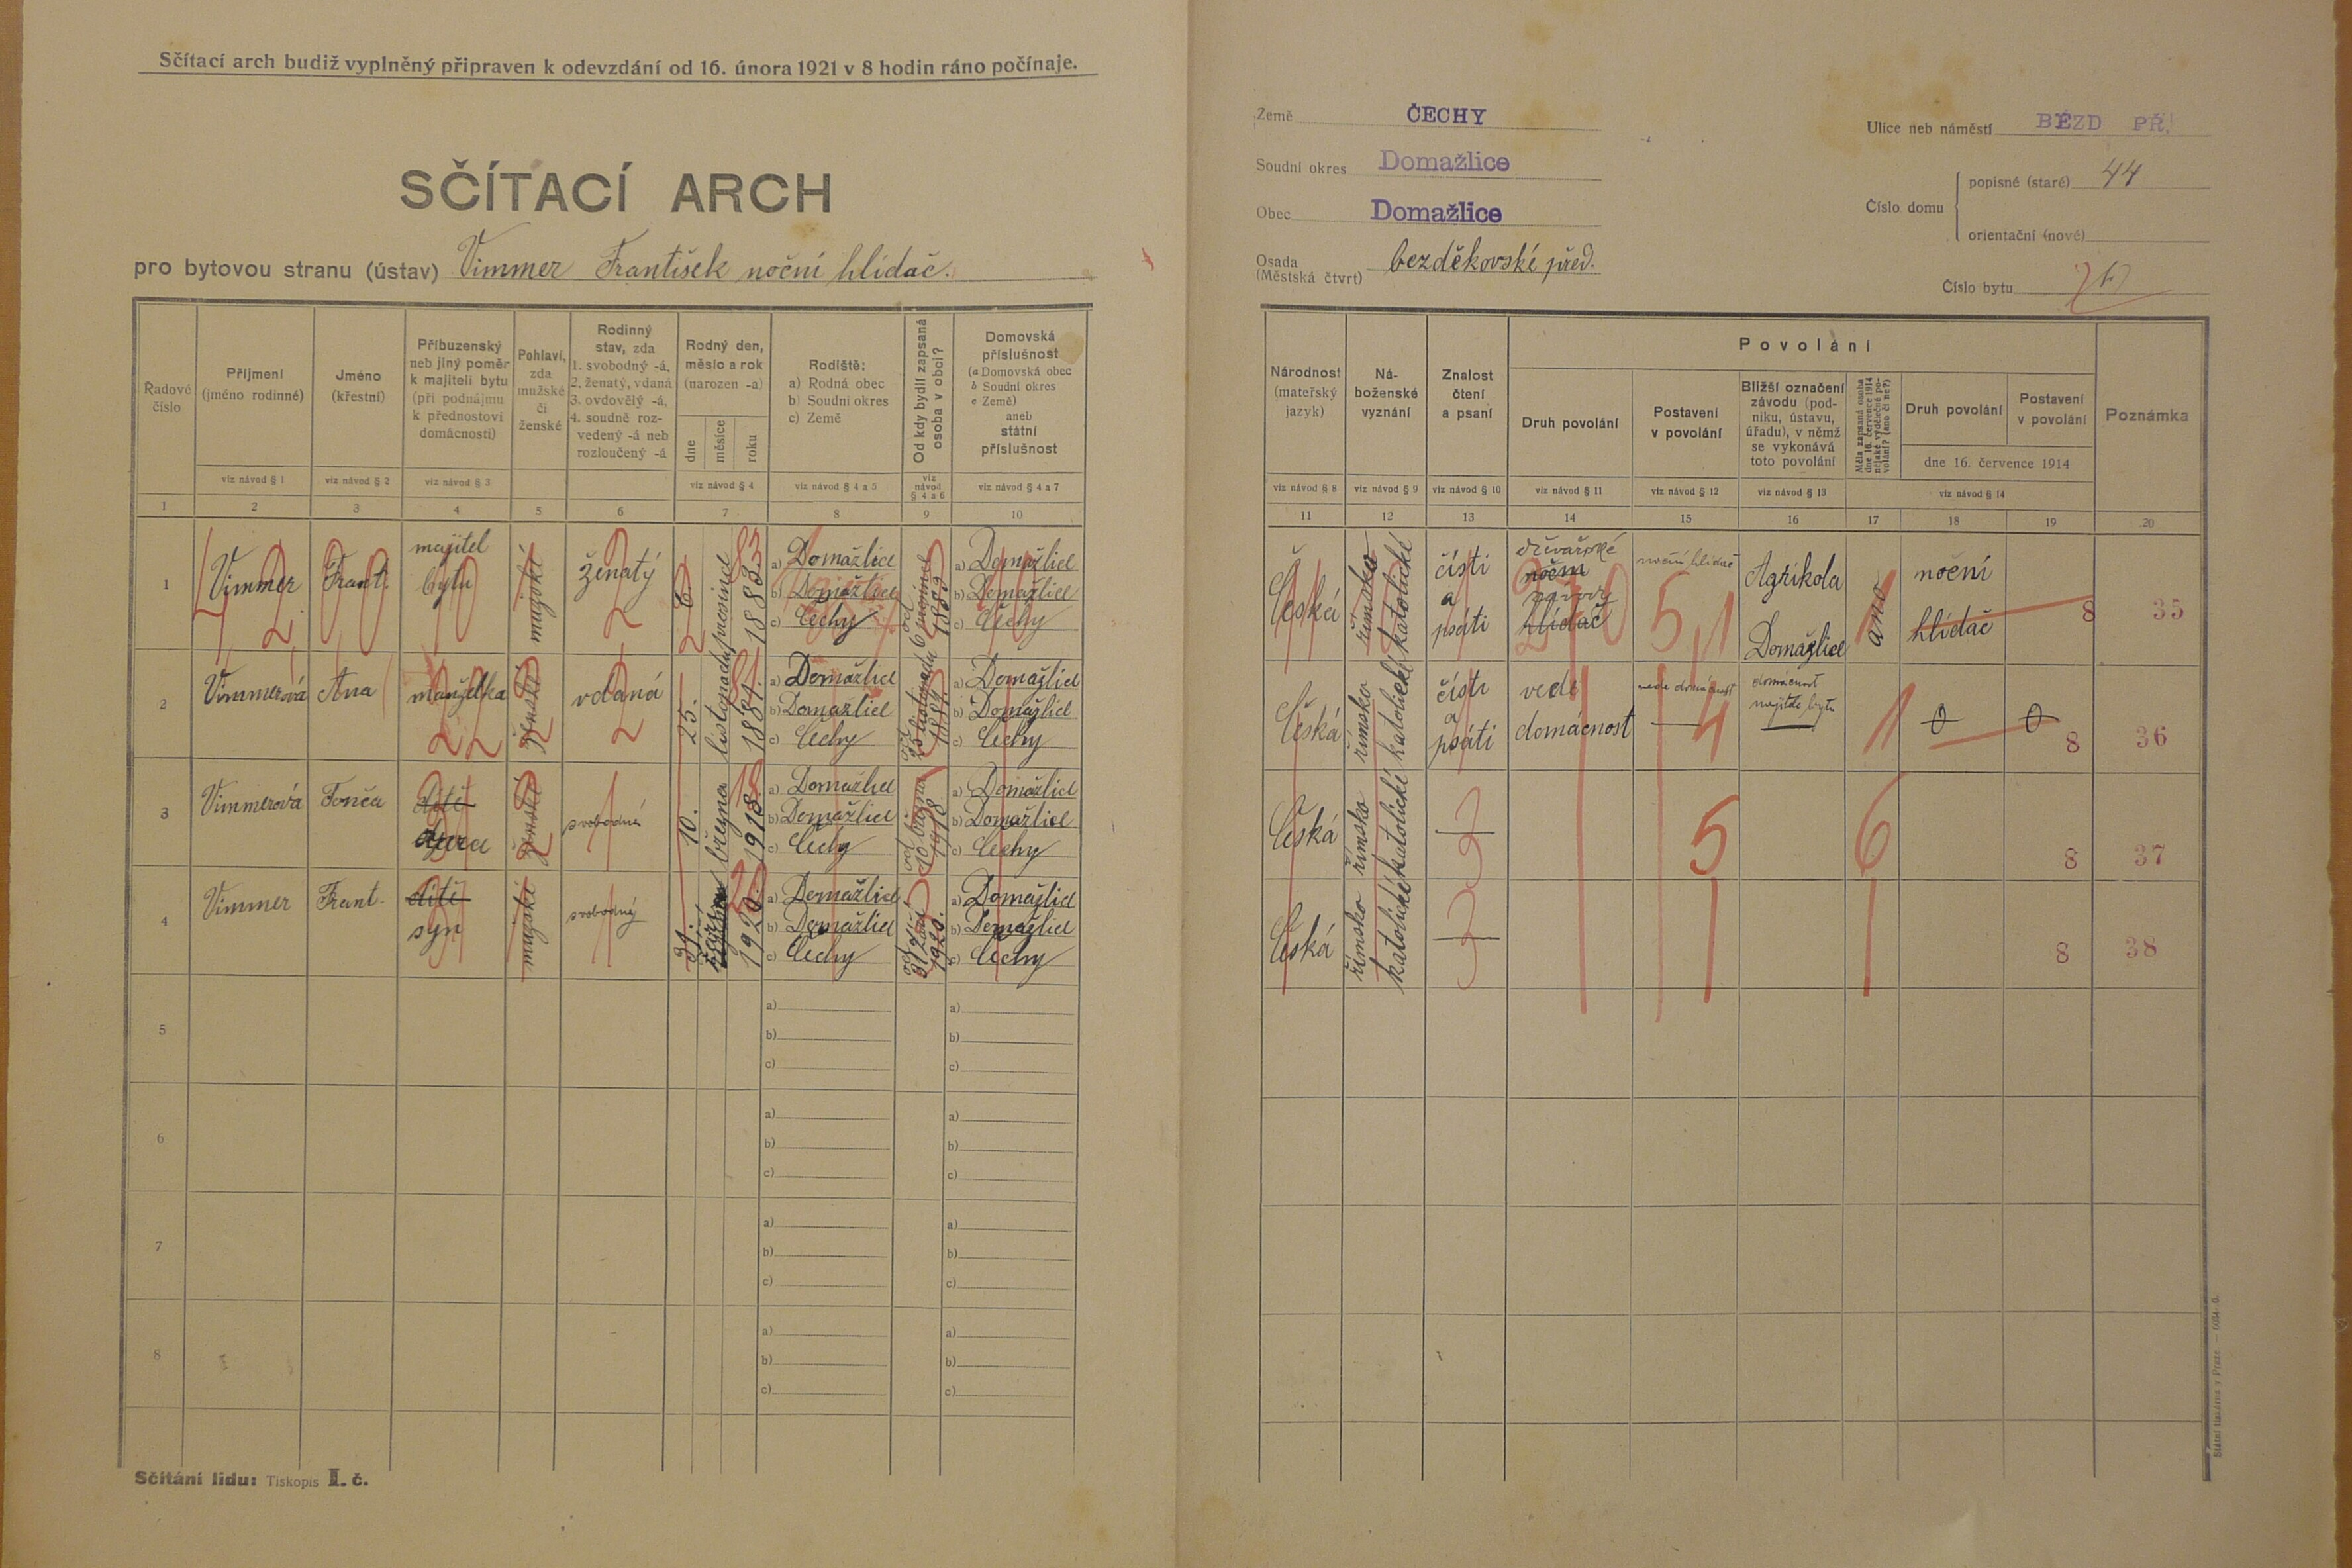 Sčítací arch budiž vyplněný připraven k odevzdání od 16. února 1921 v 8 hodin ráno počínaje.
SČÍTACÍ ARCH
pro bytovou stranu (ústav) Vimmer František noční hlídač.
Řadové číslo
Příjmení (jméno rodinné)
Jméno (křestní)
Příbuzenský neb jiný poměr k majiteli bytu (při podnájmu k přednostovi domácnosti)
Pohlaví, zda mužské či ženské
Rodinný stav, zda 1. svobodný -á, 2. ženatý, vdaná 3. ovdovělý -á, 4. soudně rozvedený -á neb rozloučený -á
Rodný den, měsíc a rok (narozen -a)
dne měsíce roku
Rodiště: a) Rodná obec b) Soudní okres c) Země
Od kdy bydlí zapsaná osoba v obci?
Domovská příslušnost (a Domovská obec b Soudní okres c Země) aneb státní příslušnost
viz návod § 1 viz návod § 2 viz návod § 3 viz návod § 4 viz návod § 4 a 5 viz návod § 4 a 6 viz návod § 4 a 7
1 2 3 4 5 6 7 8 9 10
1 Vimmer Frant. majitel bytu mužské ženatý 6. prosince 1883
a) Domažlice b) Domažlice c) Čechy
od 6 prosince 1883
a) Domažlice b) Domažlice c) Čechy
2 Vimmerová Ana manželka ženské vdaná 25. listopadu 1884.
a) Domažlice b) Domažlice c) Čechy
od 25 listopadu 1884.
a) Domažlice b) Domažlice c) Čechy
3 Vimmerová Tonča dítě dcera ženské svobodná 10. března 1918.
a) Domažlice b) Domažlice c) Čechy
od 10 března 1918
a) Domažlice b) Domažlice c) Čechy
4 Vimmer Frant. dítě syn mužské svobodný 31. 1920.
a) Domažlice b) Domažlice c) Čechy
od 31 1920.
a) Domažlice b) Domažlice c) Čechy
5 a) b) c) a) b) c)
6 a) b) c) a) b) c)
7 a) b) c) a) b) c)
8 a) b) c) a) b) c)
Sčítání lidu: Tiskopis I. č.
Země ČECHY
Soudní okres Domažlice
Obec Domažlice
Osada (Městská čtvrt) bezděkovské před.
Ulice neb náměstí BĚZD PŘ.
Číslo domu
popisné (staré) 44
orientační (nové)
Číslo bytu
Národnost (mateřský jazyk)
Náboženské vyznání
Znalost čtení a psaní
Povolání
Druh povolání
Postavení v povolání
Bližší označení závodu (podniku, ústavu, úřadu), v němž se vykonává toto povolání
Měla zapsaná osoba dne 16. července 1914 nějaké výdělečné povolání? (ano či ne?)
Druh povolání
Postavení v povolání
dne 16. července 1914
Poznámka
viz návod § 8 viz návod § 9 viz návod § 10 viz návod § 11 viz návod § 12 viz návod § 13 viz návod § 14
11 12 13 14 15 16 17 18 19 20
Česká římsko katolické čísti a psáti dřevařské noční závody hlídač noční hlídač Agrikola Domažlice ano noční hlídač 8 35
Česká římsko katolické čísti a psáti vede domácnost vede domácnost domácnost majitele bytu 0 0 8 36
Česká římsko katolické 8 37
Česká římsko katolické 8 38